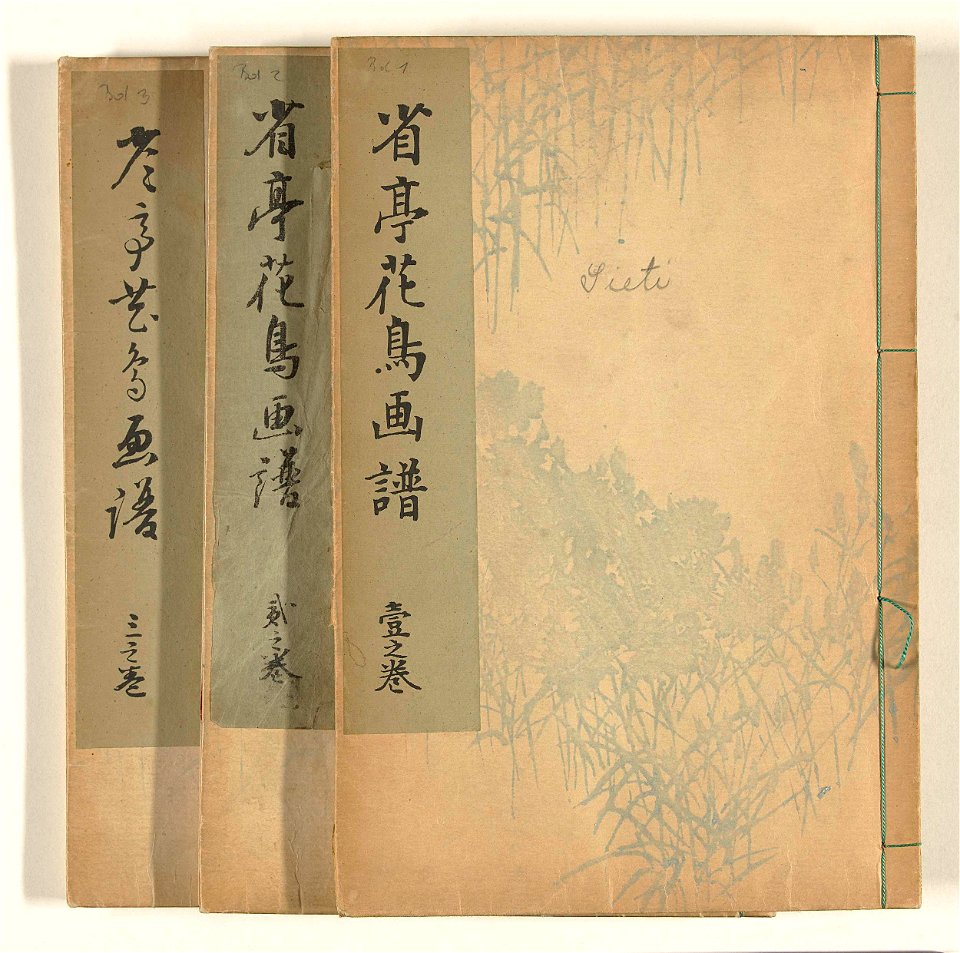 Bd 3
省亭花鳥画譜
三之巻
Bd 2
省亭花鳥画譜
貳之巻
Bd 1.
省亭花鳥画譜
壹之巻